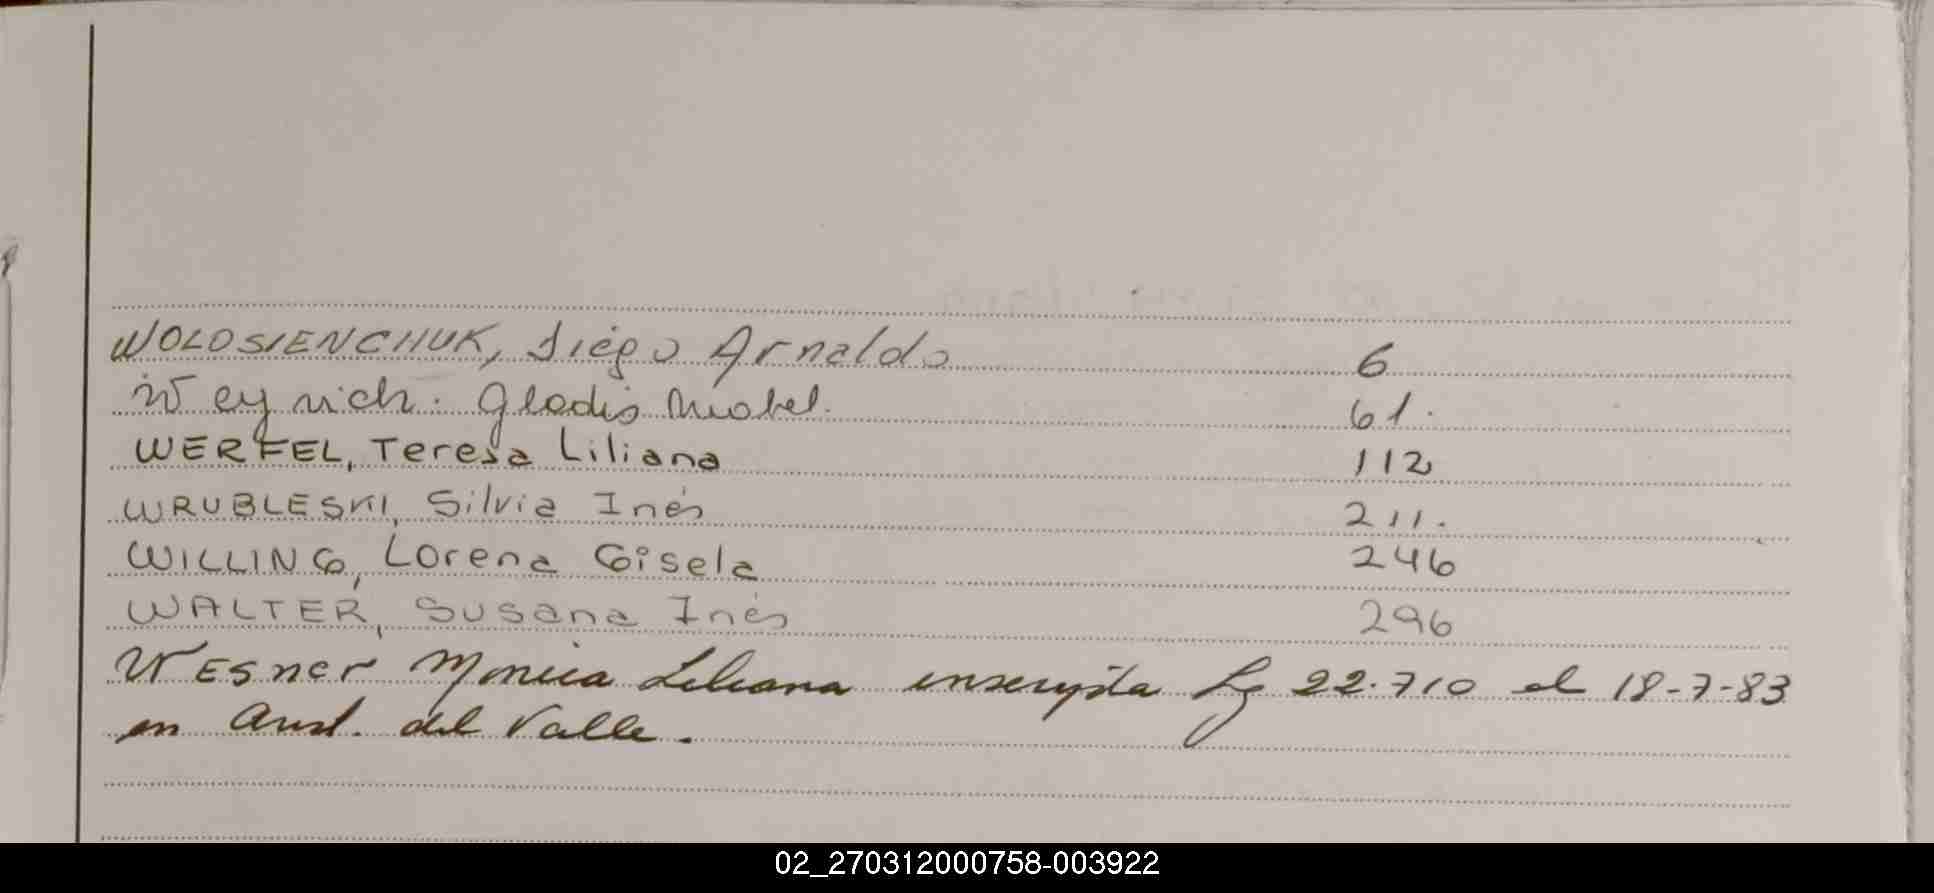 WOLOSIENCHUK, Diégo Arnaldo 6
Weyrich. Gladis Mabel. 61.
WERFEL, Teresa Liliana 112
WRUBLESKI, Silvia Inés 211.
WILLING, Lorena Gisela 246
WALTER, Susana Inés 296
WESner Monica Liliana inscripta 22.710 el 18-7-83
en del Valle.
02_270312000758-003922